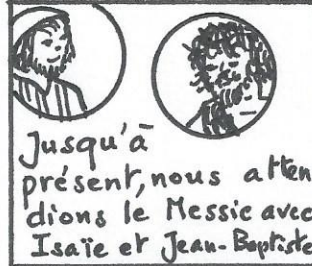 Jusqu'à
présent, nous atten
dions le Messie avec
Isaïe et Jean-Baptiste